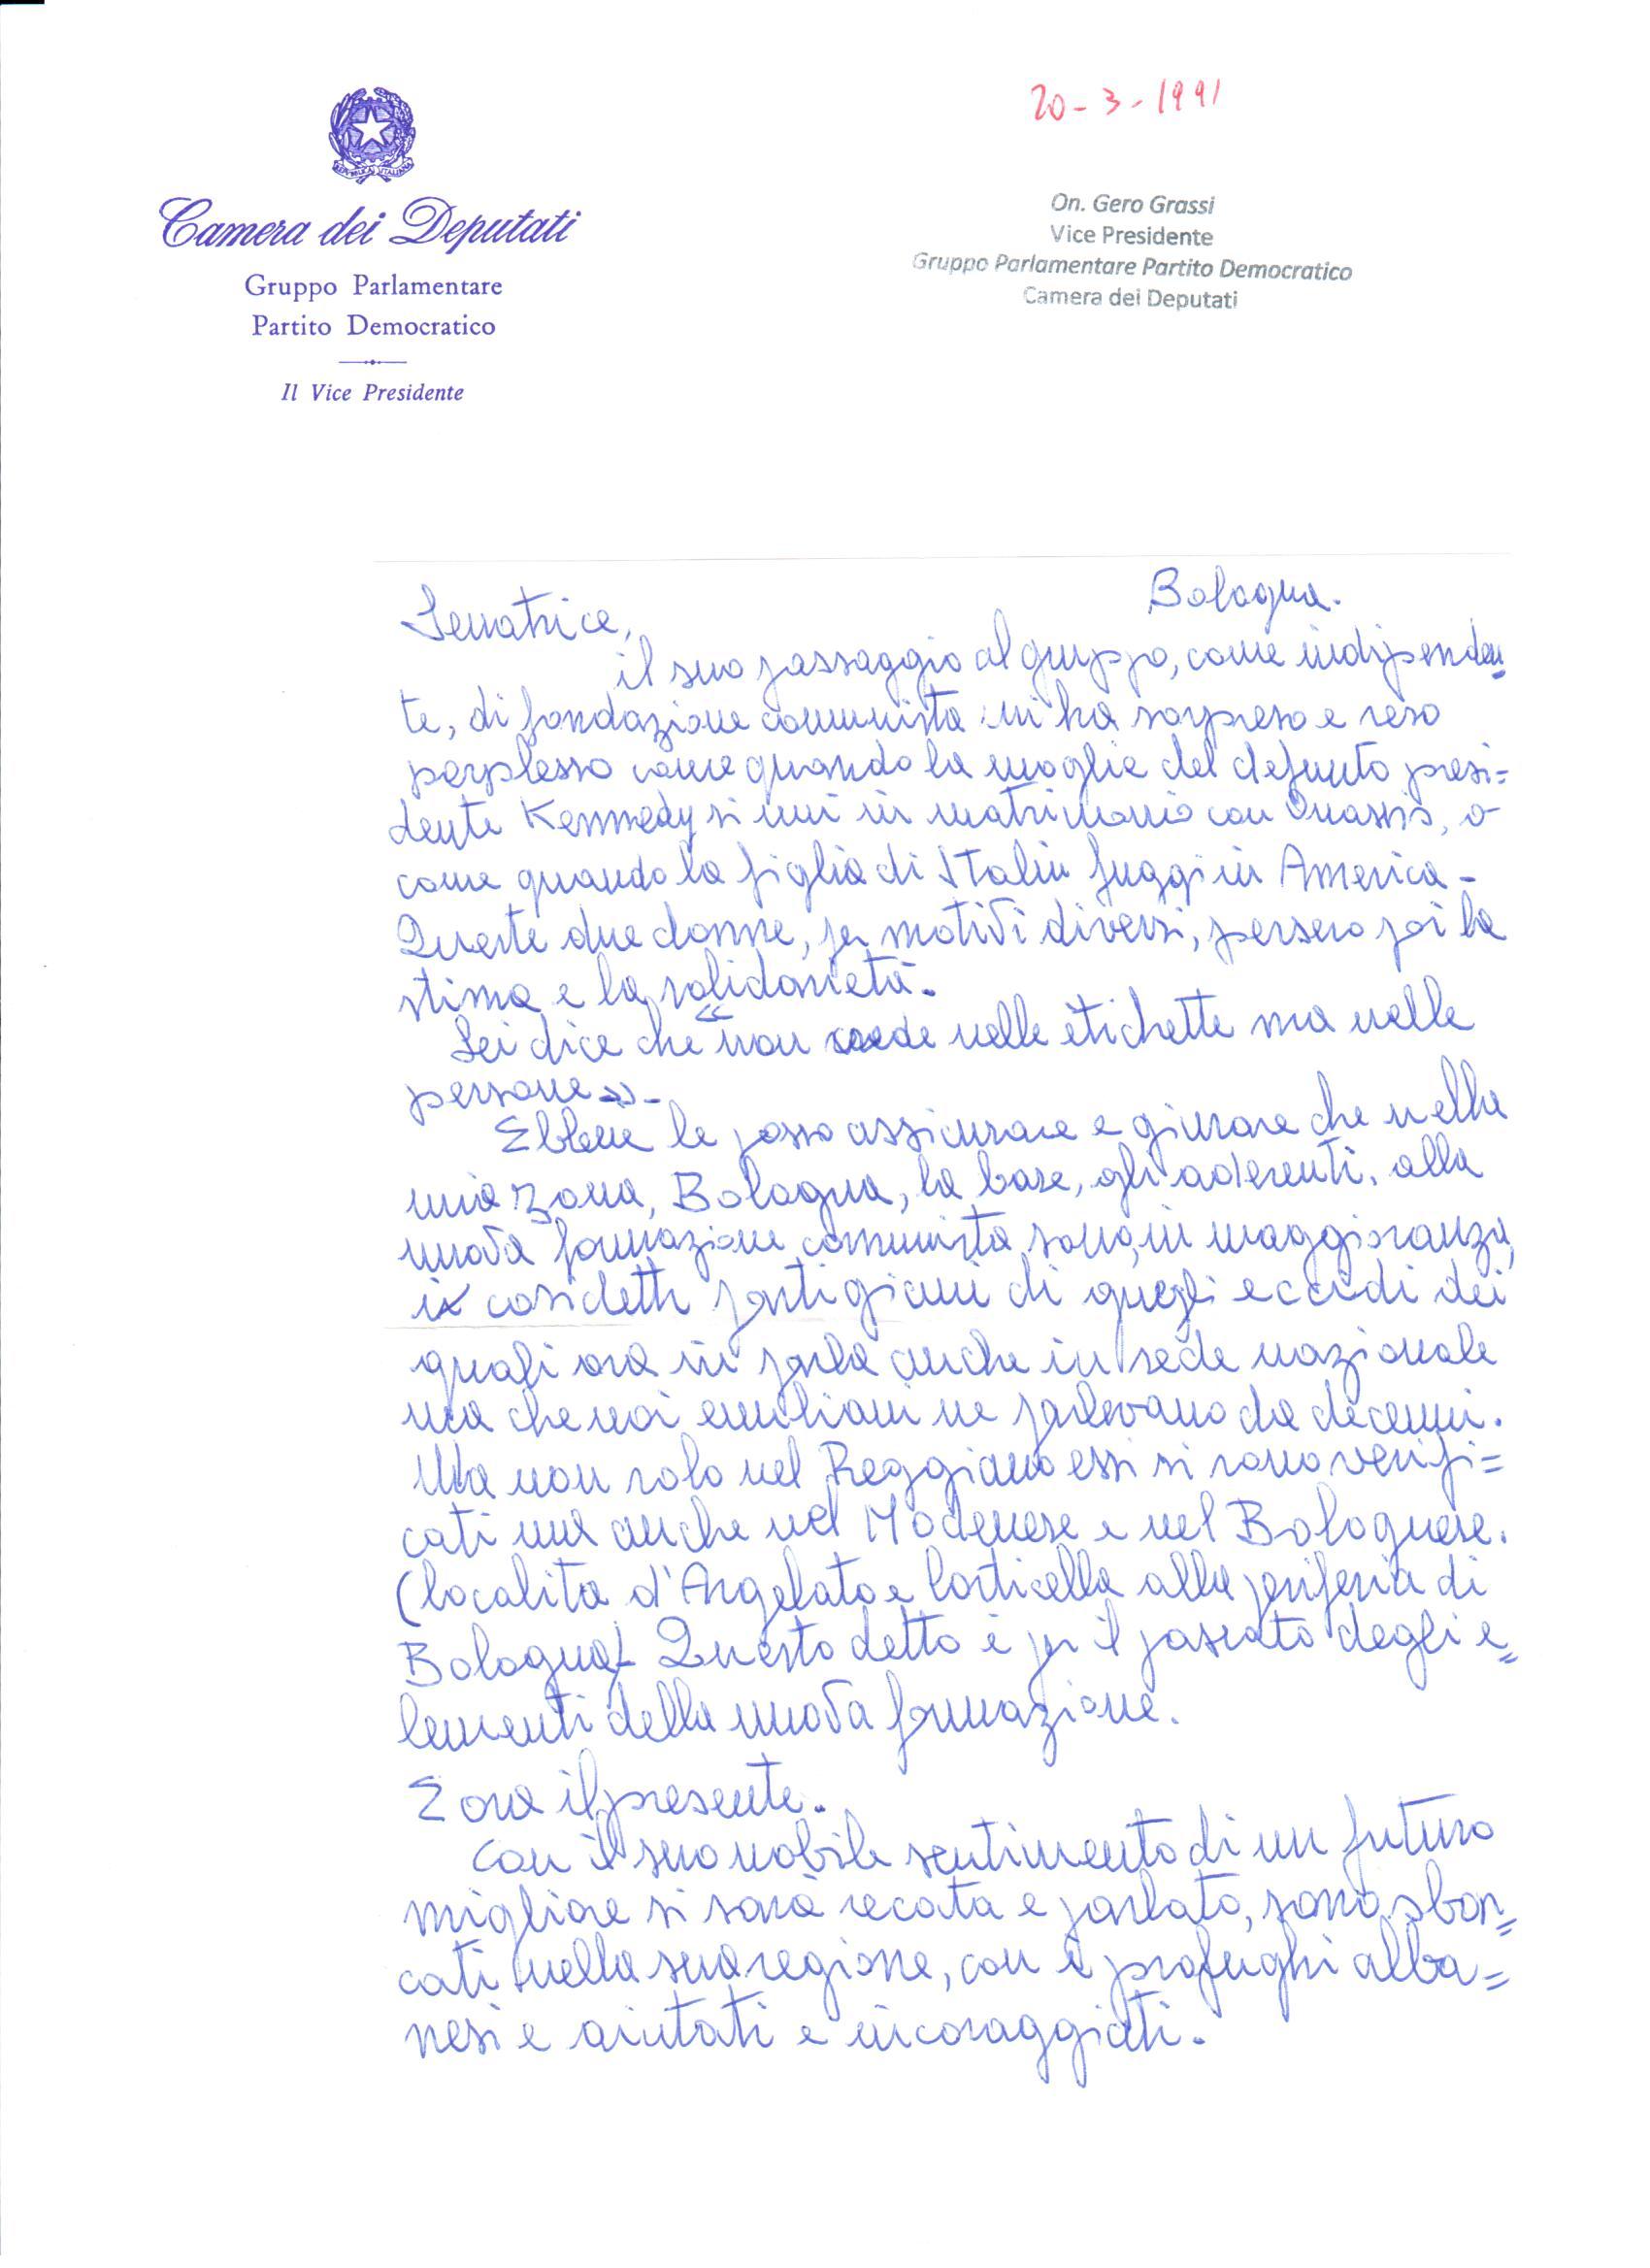 20-3-1991
REPVBBLICA ITALIANA
Camera dei Deputati
Gruppo Parlamentare
Partito Democratico
Il Vice Presidente
On. Gero Grassi
Vice Presidente
Gruppo Parlamentare Partito Democratico
Camera dei Deputati
Bologna.
Senatrice,
il suo passaggio al gruppo, come indipenden
te, di fondazione comunista mi ha sorpreso e reso
perplesso come quando la moglie del defunto presi=
dente Kennedy si unì in matrimonio con Onassis, o
come quando la figlia di Stalin fuggì in America -
Queste due donne, per motivi diversi, persero poi la
stima e la solidarietà.
Lei dice che «non crede nelle etichette ma nelle
persone» -
Ebbene le posso assicurare e giurare che nella
mia zona, Bologna, la base, gli aderenti, alla
nuova formazione comunista sono, in maggioranza,
i cosidetti partigiani di quegli eccidi dei
quali ora si parla anche in sede nazionale
ma che noi emiliani ne parlavamo da decenni.
Ma non solo nel Reggiano essi si sono verifi=
cati ma anche nel Modenese e nel Bolognese.
(località d'Argelato e Corticella alla periferia di
Bologna) - Questo detto è per il passato degli e=
lementi della nuova formazione.
E ora il presente.
Con il suo nobile sentimento di un futuro
migliore si sarà recata e parlato, sono sbar=
cati nella sua regione, con i profughi alba=
nesi e aiutati e incoraggiati.